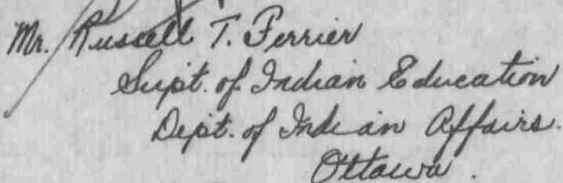 Mr. Russell T. Ferrier
Supt. of Indian Education
Dept. of Indian Affairs.
Ottawa.